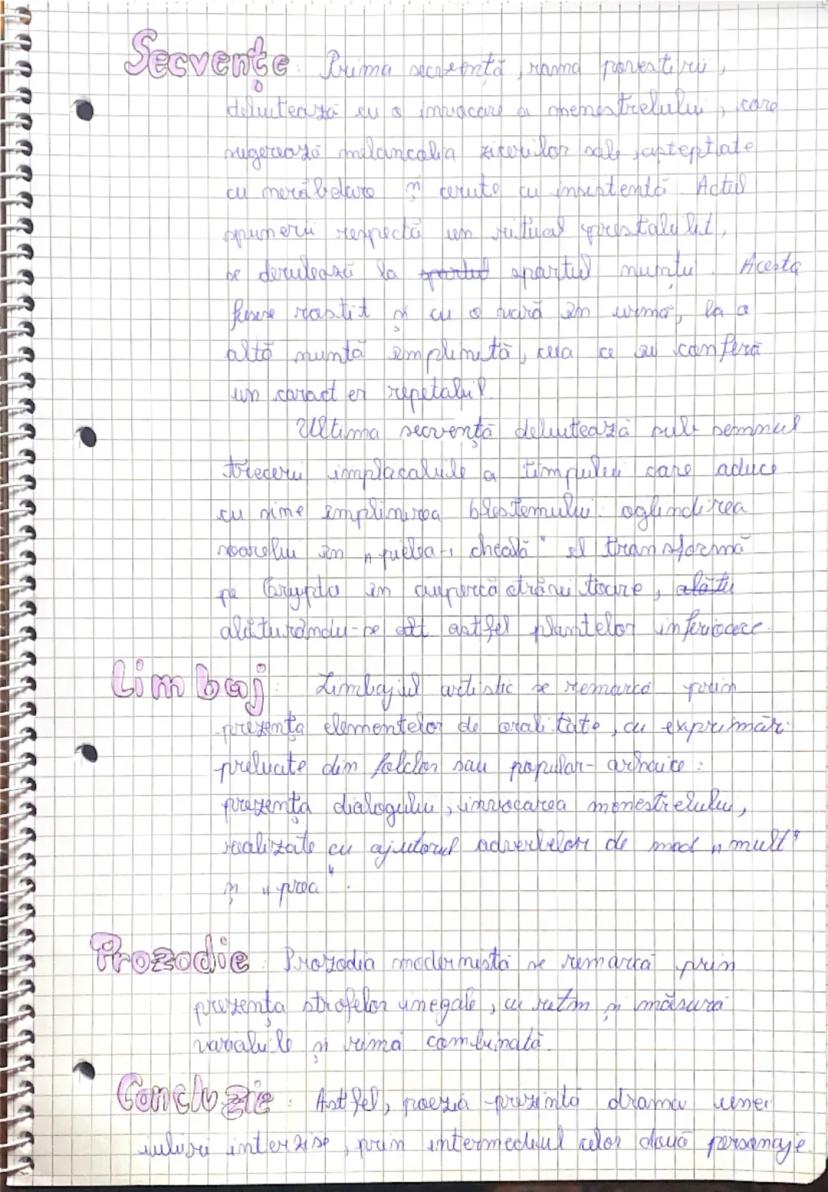 Secvențe: Prima secvență, rama povestirii,
debutează cu o invocare a menestrelului, care
sugerează melancolia zicerilor sale, așteptate
cu nerăbdare și cerute cu insistență. Actul
spunerii respectă un ritual prestabilit,
se derulează la spartul spartul nunții. Acesta
fusese rostit și cu o vară în urmă, la o
altă nuntă împlinită, ceea ce îi conferă
un caracter repetabil.
Ultima secvență debutează sub semnul
trecerii implacabile a timpului care aduce
cu sine împlinirea blestemului: oglindirea
soarelui în „pielea-i cheală" îl transformă
pe Crypto în ciupercă otrăvitoare,
alăturându-se astfel plantelor inferioare.
Limbaj: Limbajul artistic se remarcă prin
prezența elementelor de oralitate, cu exprimări
preluate din folclor sau popular-arhaice:
prezența dialogului, invocarea menestrelului,
realizate cu ajutorul adverbelor de mod „mult"
și „prea".
Prozodie: Prozodia modernistă se remarcă prin
prezența strofelor inegale, cu ritm și măsură
variabile și rimă combinată.
Concluzie: Astfel, poezia prezintă drama unei
iubiri interzise, prin intermediul celor două personaje